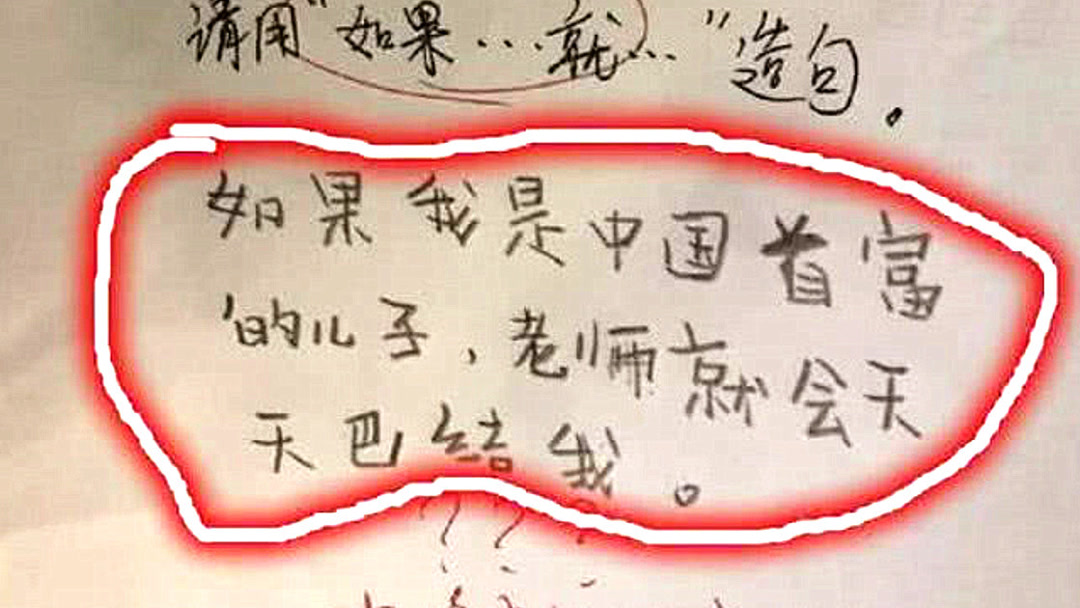 请用"如果...就..."造句.
如果我是中国首富
的儿子,老师就会天
天巴结我。
???